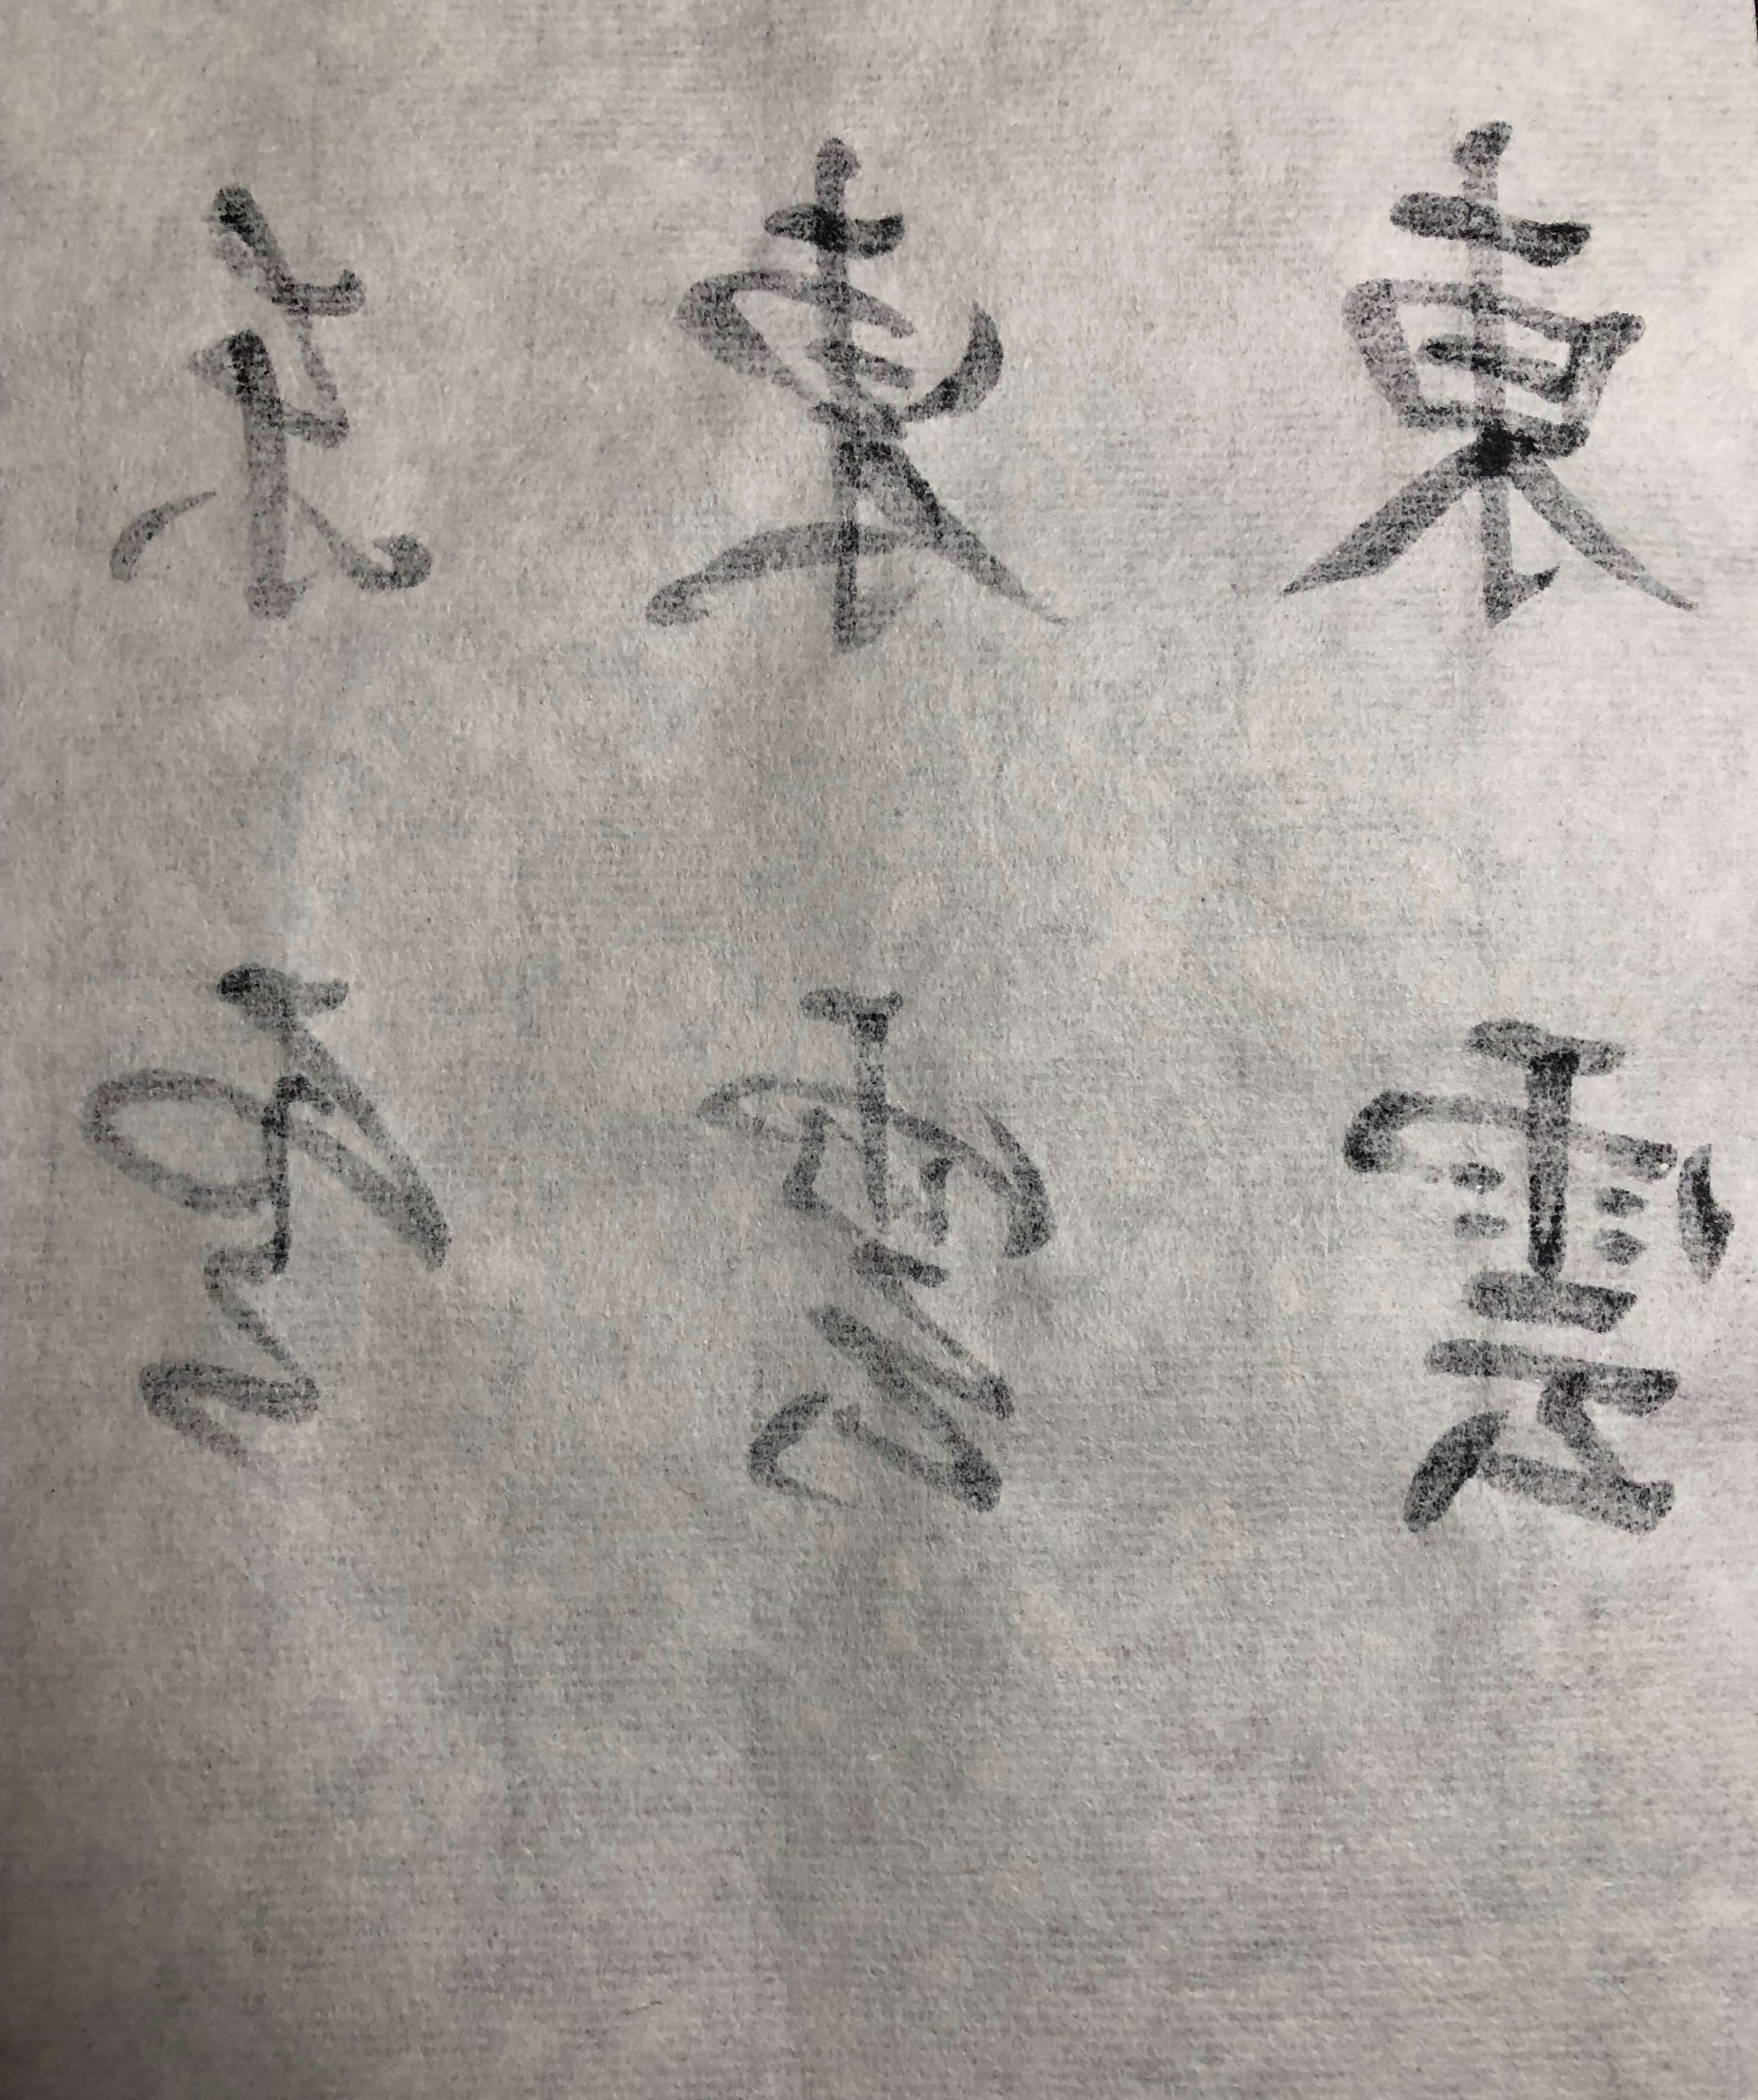 東雲
東雲
東雲